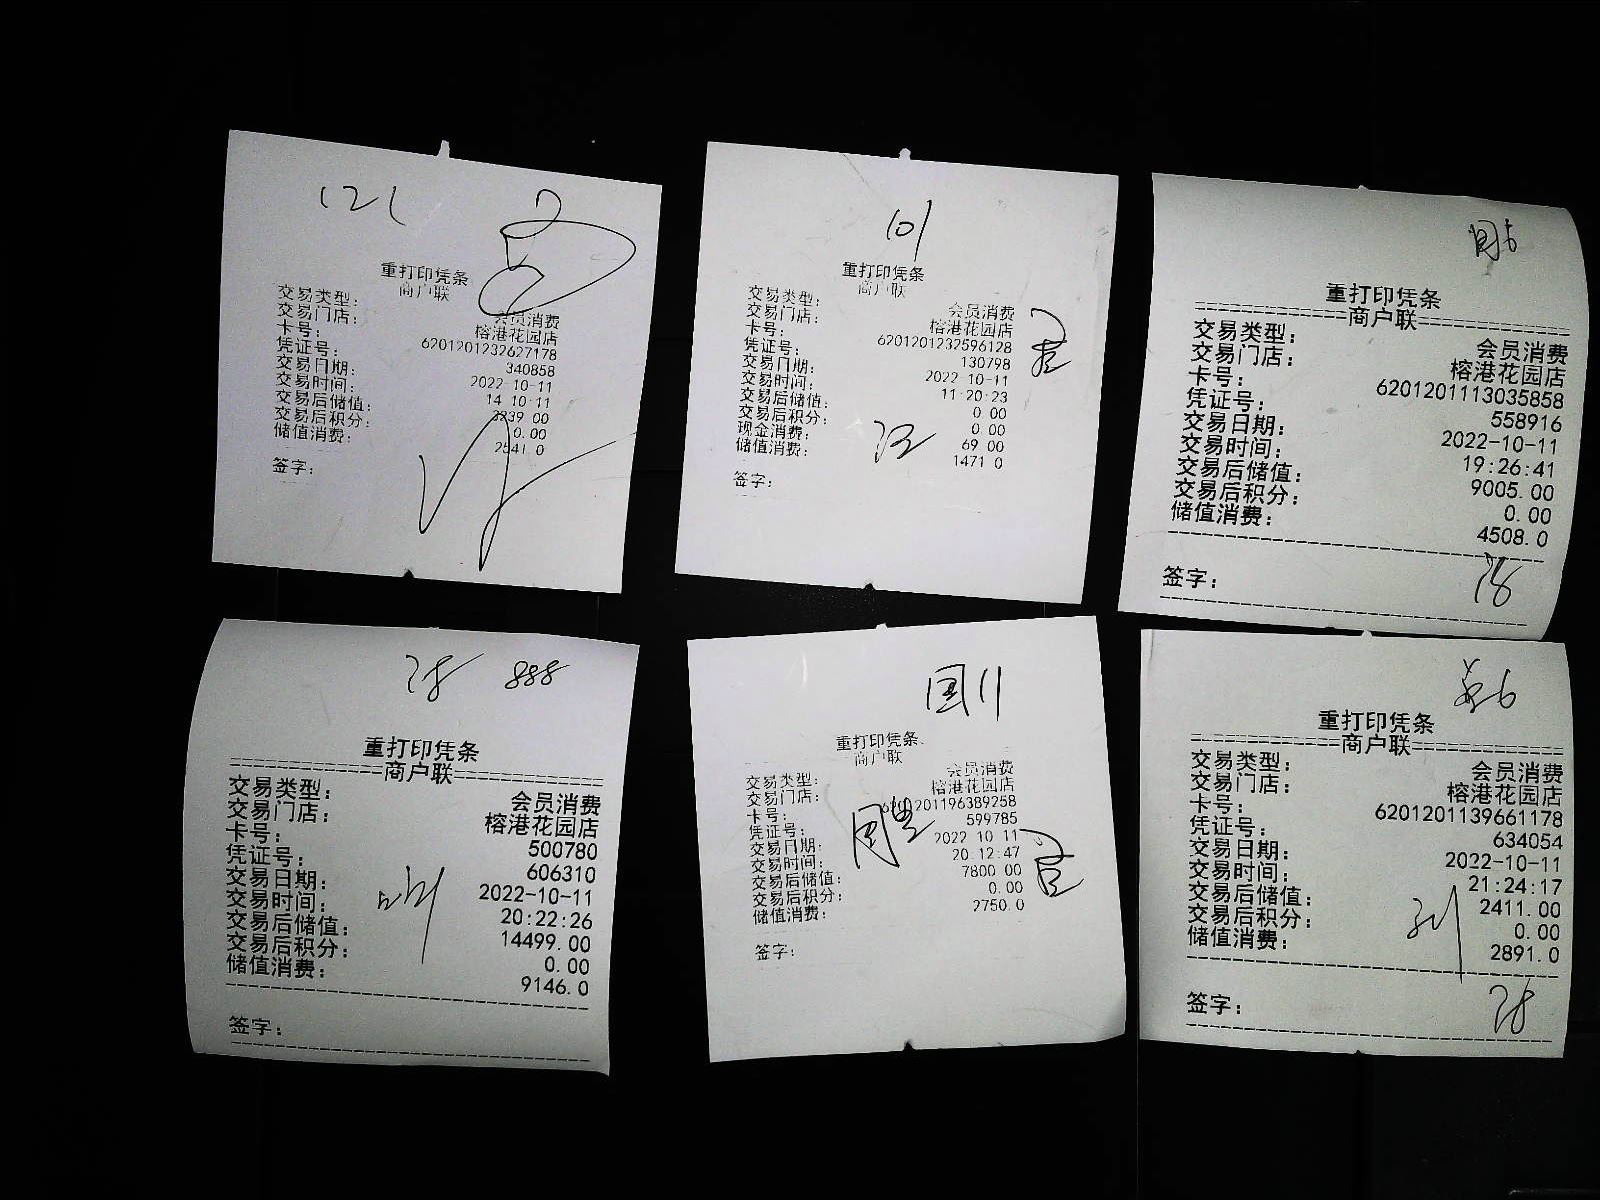 121
重打印凭条
商户联
交易类型： 会员消费
交易门店： 榕港花园店
卡号： 6201201232627178
凭证号： 340858
交易日期： 2022-10-11
交易时间： 14 10 11
交易后储值： 2239 00
交易后积分： 0.00
储值消费： 2541 0
签字：
101
重打印凭条
商户联
交易类型： 会员消费
交易门店： 榕港花园店
卡号： 6201201232596128
凭证号： 130798
交易日期： 2022-10-11
交易时间： 11 20 23
交易后储值： 0 00
交易后积分： 0.00
现金消费： 69 00
储值消费： 1471 0
签字：
重打印凭条
商户联
交易类型： 会员消费
交易门店： 榕港花园店
卡号： 6201201113035858
凭证号： 558916
交易日期： 2022-10-11
交易时间： 19:26:41
交易后储值： 9005.00
交易后积分： 0.00
储值消费： 4508.0
签字：
888
重打印凭条
商户联
交易类型： 会员消费
交易门店： 榕港花园店
卡号： 500780
凭证号： 606310
交易日期： 2022-10-11
交易时间： 20:22:26
交易后储值： 14499.00
交易后积分： 0.00
储值消费： 9146.0
签字：
重打印凭条
商户联
交易类型： 会员消费
交易门店： 榕港花园店
卡号： 6201201196389258
凭证号： 599785
交易日期： 2022 10 11
交易时间： 20:12:47
交易后储值： 7800 00
交易后积分： 0.00
储值消费： 2750.0
签字：
重打印凭条
商户联
交易类型： 会员消费
交易门店： 榕港花园店
卡号： 6201201139661178
凭证号： 634054
交易日期： 2022-10-11
交易时间： 21:24:17
交易后储值： 2411.00
交易后积分： 0.00
储值消费： 2891.0
签字：